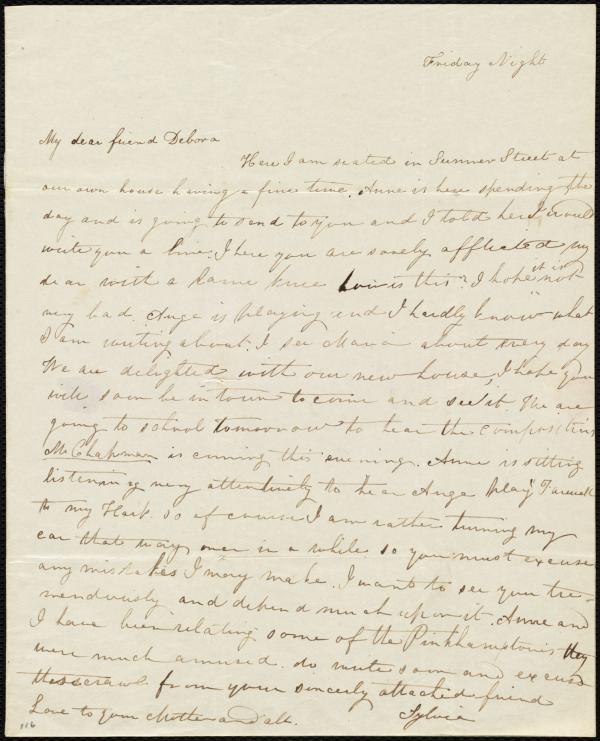 Friday Night
My dear friend Debora
Here I am seated in Sumner Street at
our own house having a fine time. Anne is here spending the
day and is going to send to you and I told her I would
write you a line. I here you are sorely afflicted my
dear with a lame knee how is this? I hope it is not
very bad. Ange is playing and I hardly know what
I am writing about. I see Maria about every day
We are delighted with our new house, I hope you
will soon be in town to come and see it. We are
going to school tomorrow to hear the compositions
Mr Chapman is coming this evening. Anne is sitting
listening very attentively to hear Ange play "Farewell
to my Harp. so of course I am rather turning my
ear that way once in a while so you must excuse
any mistakes I may make. I want to see you tre-
mendously and depend much upon it. Anne and
I have been relating some of the Pinkhamptonis they
were much amused. do write soon and excuse
this scrawl from your sincerly attached friend
Love to your Mother and all. Sylvia
116